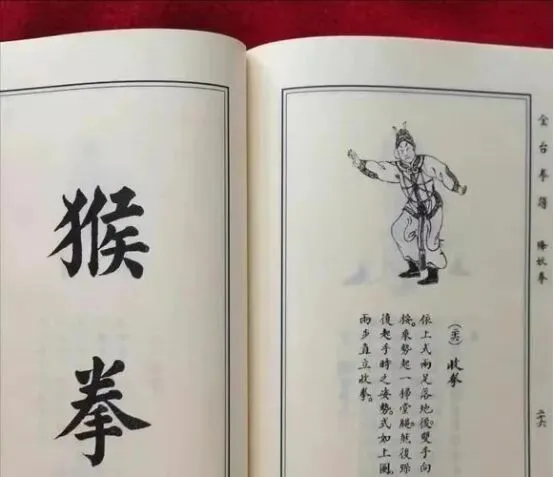 金台拳譜 降妖拳
收拳
依上式兩足落地後。雙手向
按。乘勢起一掃堂腿。然後
復起手時之姿勢。式如上圖。
兩步直立收拳。
猴拳